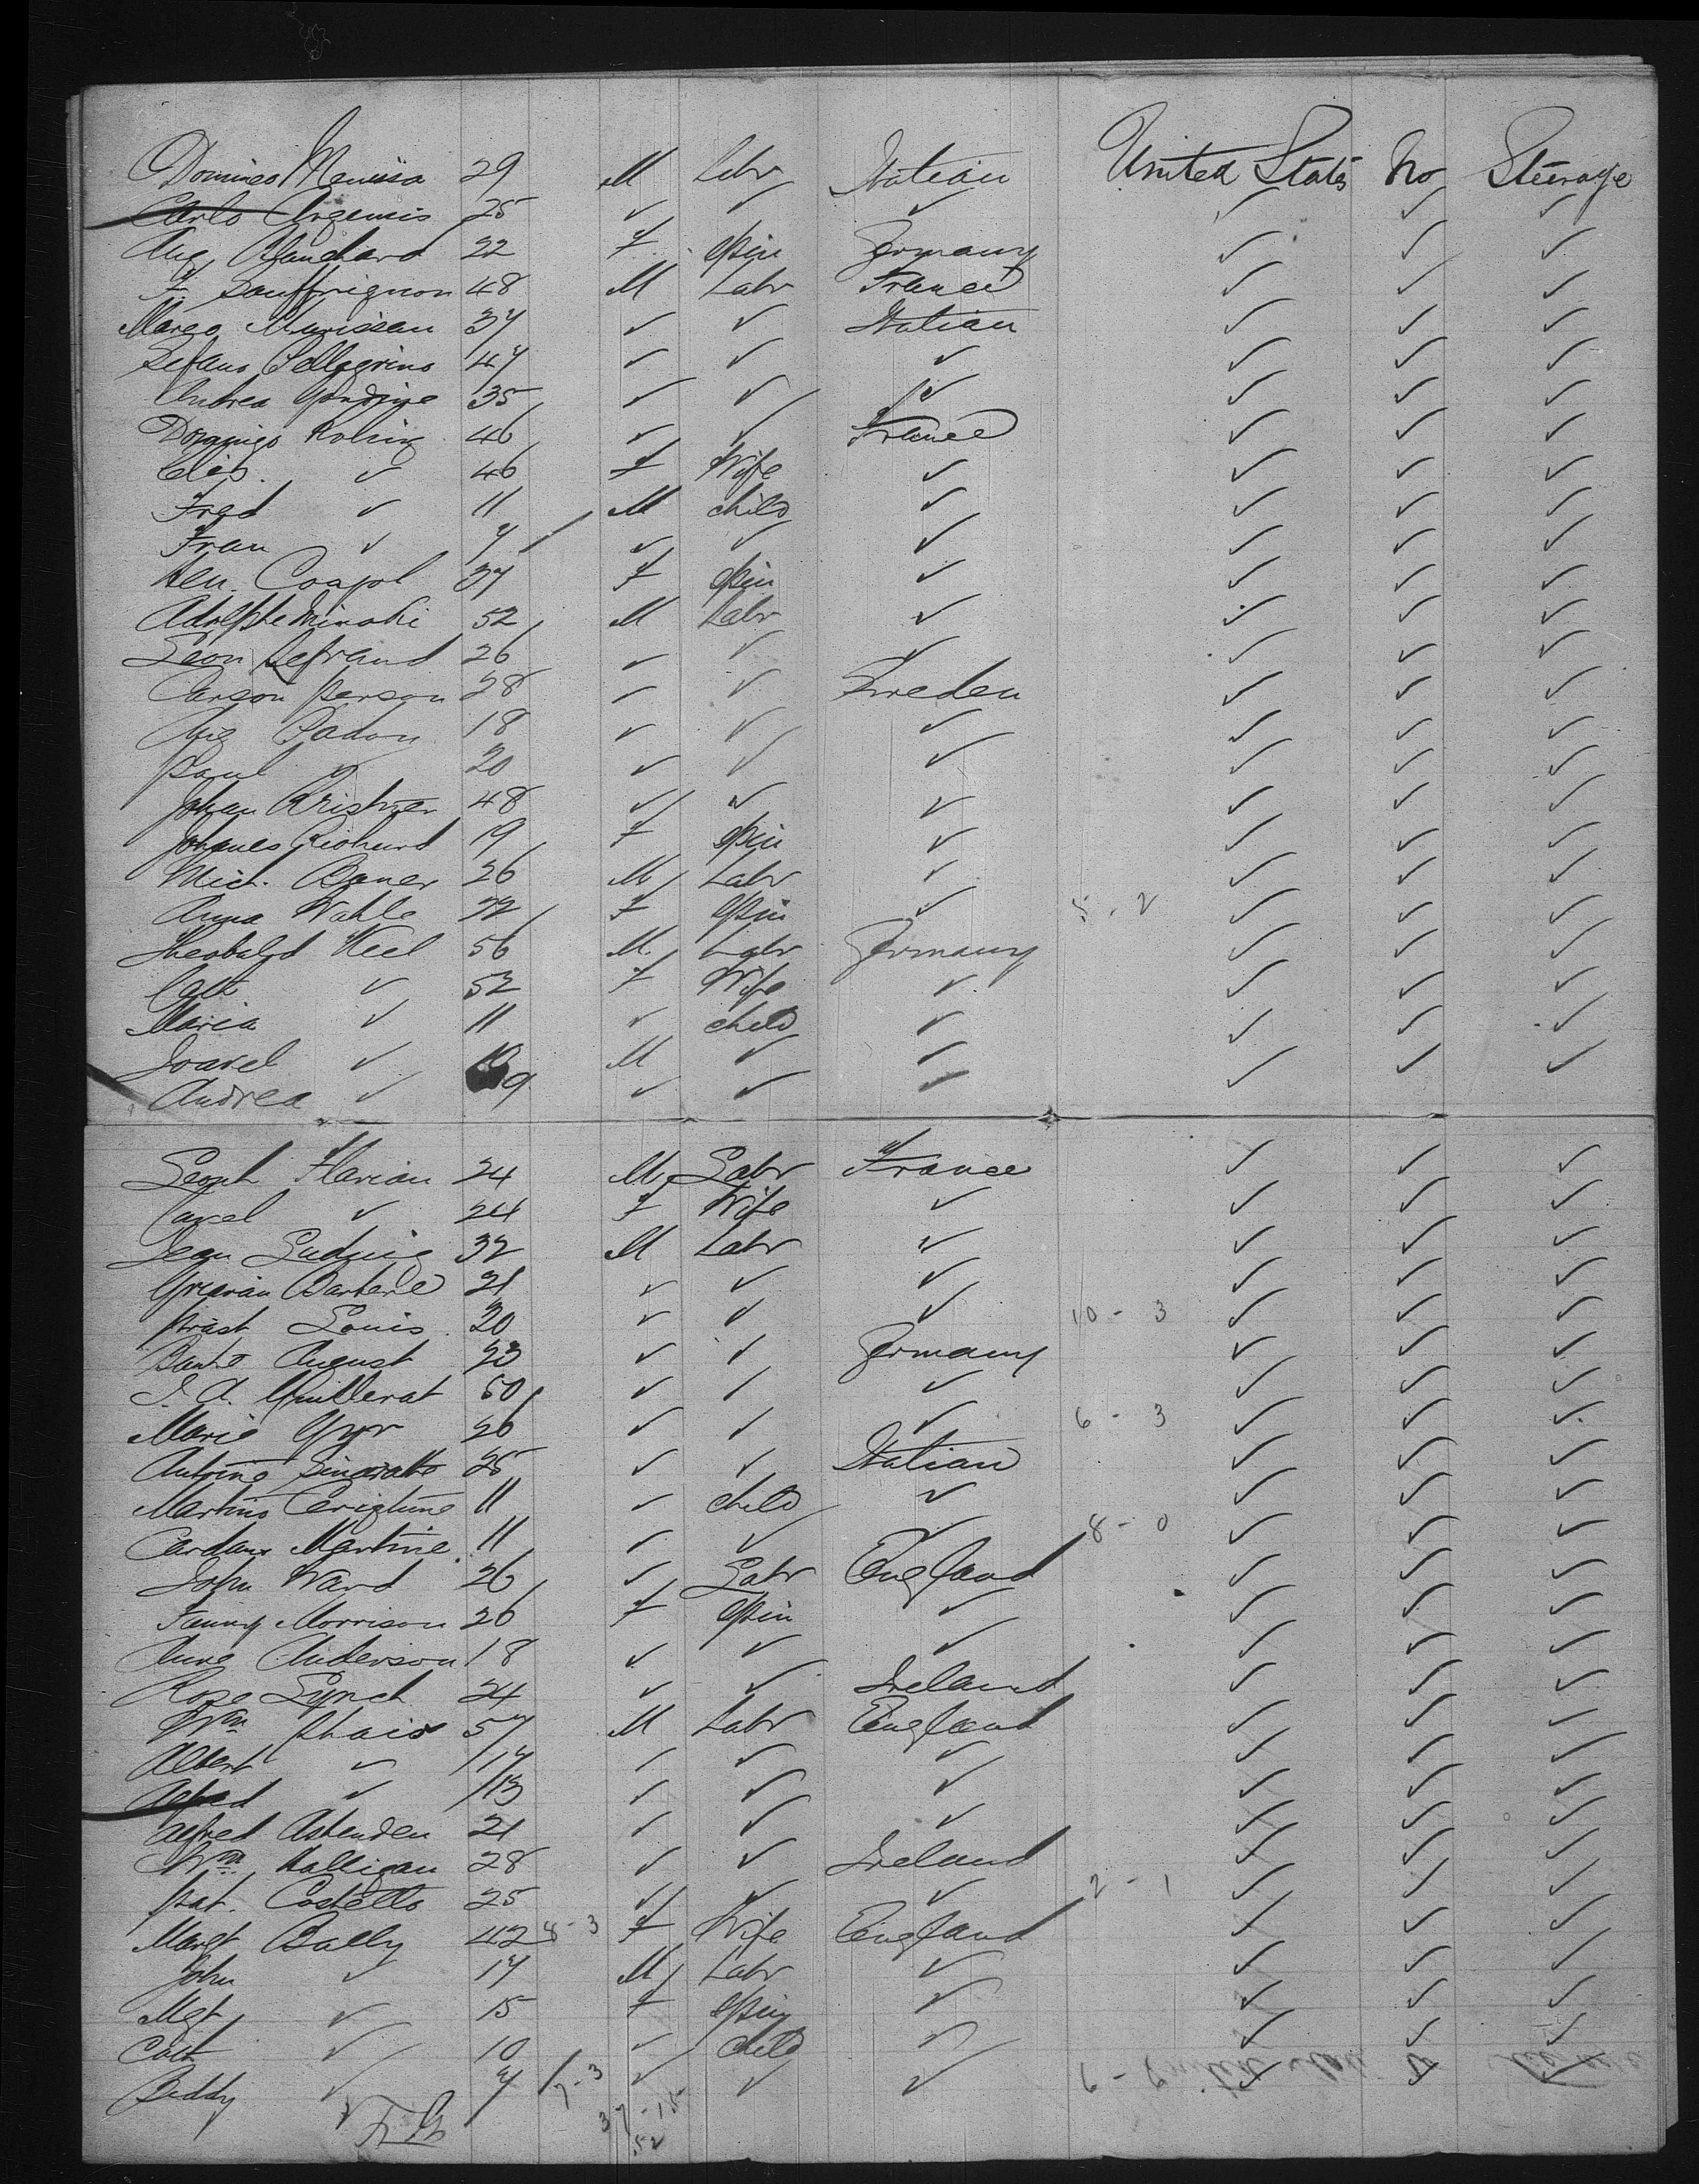 Domineo Menissa 29 M Labr Italian United States No Steerage
Carlo Argemis 25 ✓ ✓ ✓ ✓ ✓ ✓
Aug Blanchard 22 F Spin Germany ✓ ✓ ✓
F. Souffrignon 48 M Labr France ✓ ✓ ✓
Marco Murissan 37 ✓ ✓ Italian ✓ ✓ ✓
Sefano Pellegrino 47 ✓ ✓ ✓ ✓ ✓ ✓
Andrea 35 ✓ ✓ ✓ ✓ ✓ ✓
Domingo 46 ✓ ✓ France ✓ ✓ ✓
Elis. ✓ 46 F Wife ✓ ✓ ✓ ✓
Fred ✓ 11 M child ✓ ✓ ✓ ✓
Fran ✓ 7 ✓ ✓ ✓ ✓ ✓ ✓
Hen. 37 F Spin ✓ ✓ ✓ ✓
Adolphe Minoki 52 M Labr ✓ ✓ ✓ ✓
Leon Lefrand 26 ✓ ✓ ✓ ✓ ✓ ✓
Carson Person 28 ✓ ✓ Sweden ✓ ✓ ✓
Aug Padon 18 ✓ ✓ ✓ ✓ ✓ ✓
Paul ✓ 20 ✓ ✓ ✓ ✓ ✓ ✓
Johan Kristner 48 ✓ ✓ ✓ ✓ ✓ ✓
Johanes Richard 19 F Spin ✓ ✓ ✓ ✓
Mich. Baner 26 M Labr ✓ ✓ ✓ ✓
Anna Wahle F Spin ✓ 5 - 2 ✓ ✓ ✓
Theobald Keel 56 M Labr Germany ✓ ✓ ✓
Cath ✓ 52 F Wife ✓ ✓ ✓ ✓
Maria ✓ 11 ✓ child ✓ ✓ ✓ ✓
✓ 10 M ✓ ✓ ✓ ✓ ✓
Andrea ✓ 9 ✓ ✓ ✓
Flavian 24 M Labr France ✓ ✓ ✓
✓ 24 F Wife ✓ ✓ ✓ ✓
Jean Ludwig 32 M Labr ✓ ✓ ✓ ✓
Barbere 21 ✓ ✓ ✓ ✓ ✓ ✓
Louis 20 ✓ ✓ ✓ 10 - 3 ✓ ✓ ✓
August 23 ✓ ✓ Germany ✓ ✓ ✓
J. A. Guillerat 50 ✓ ✓ ✓ ✓ ✓ ✓
Marie Gyr 26 ✓ ✓ ✓ 6 - 3 ✓ ✓ ✓
Antoine 25 ✓ ✓ Italian ✓ ✓ ✓
Martino 11 ✓ child ✓ ✓ ✓ ✓
Cardano Martine 11 ✓ ✓ ✓ 8 - 0 ✓ ✓ ✓
John Ward 26 ✓ Labr England ✓ ✓ ✓
Fanny Morrison 26 F Spin ✓ ✓ ✓ ✓
Anne Anderson 18 ✓ ✓ ✓ ✓ ✓ ✓
Rose Lynch 24 ✓ ✓ Ireland ✓ ✓ ✓
Wm 57 M Labr England ✓ ✓ ✓
Albert ✓ 17 ✓ ✓ ✓ ✓ ✓ ✓
Alfred ✓ 13 ✓ ✓ ✓ ✓ ✓ ✓
Alfred Astenden 21 ✓ ✓ ✓ ✓ ✓ ✓
Wm Halligan 28 ✓ ✓ Ireland ✓ ✓ ✓
Pat. Costello 25 ✓ ✓ ✓ 2 - 1 ✓ ✓ ✓
Margt Bally 42 8 - 3 F Wife England ✓ ✓ ✓
John ✓ 17 M Labr ✓ ✓ ✓ ✓
Mgt ✓ 15 F Spin ✓ ✓ ✓ ✓
Cath ✓ 10 ✓ child ✓ ✓ ✓ ✓
Biddy ✓ 7 7 - 3 ✓ ✓ ✓ 6 -
37 - 15
52